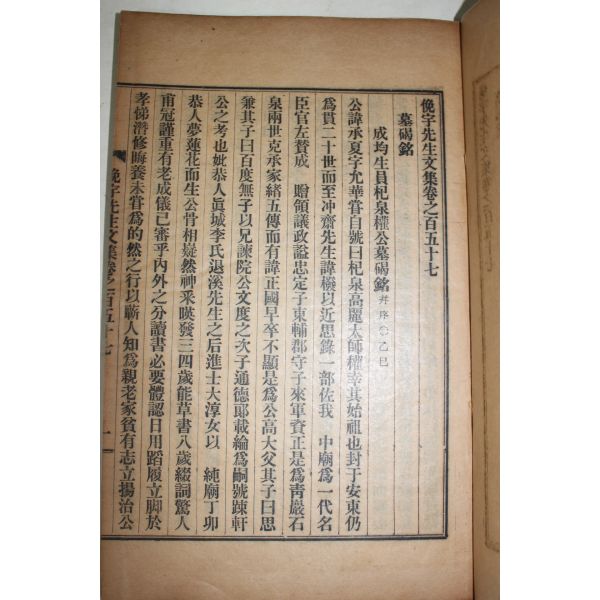 俛宇先生文集卷之百五十七
墓碣銘
成均生員杞泉權公墓碣銘 幷序○乙巳
公諱承夏字允華嘗自號曰杞泉高麗太師權幸其始祖也封于安東仍
爲貫二十世而至冲齋先生諱橃以近思錄一部佐我 中廟爲一代名
臣官左賛成 贈領議政謚忠定子東輔郡守子來軍資正是爲靑巖石
泉兩世克承家緖五傳而有諱正國早卒不顯是爲公高大父其子曰思
兼其子曰百度無子以兄諫院公文度之次子通德郞載綸爲嗣號踈軒
公之考也妣恭人眞城李氏退溪先生之后進士大淳女以 純廟丁卯
恭人夢蓮花而生公骨相嶷然神釆暎發三四歲能草書八歲綴詞驚人
甫冠謹重有老成儀已審乎內外之分讀書必要體認日用蹈履立脚於
孝悌潛修晦養未嘗爲的然之行以蘄人知爲親老家貧有志立揚治公
俛宇先生文集卷之百五十七
一